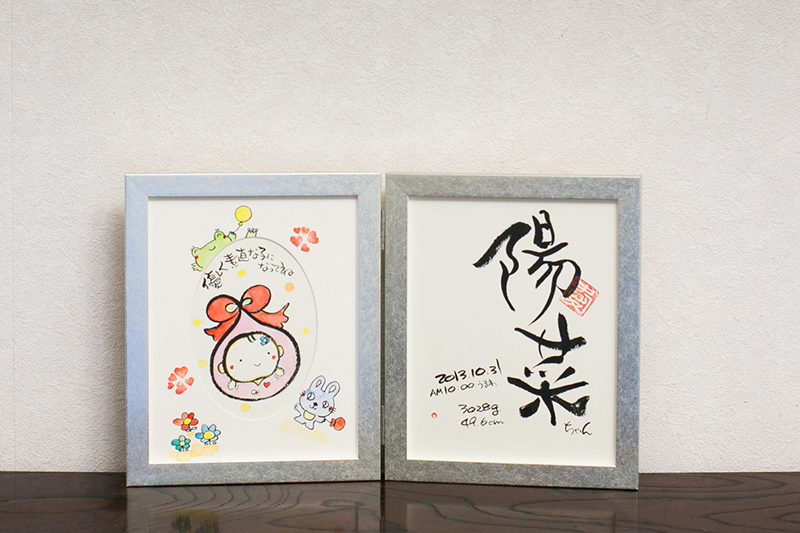 優しく素直な子に
なってね
陽菜
2013.10.31
AM10:00うまれ
3028g
49.6cm
ちゃん